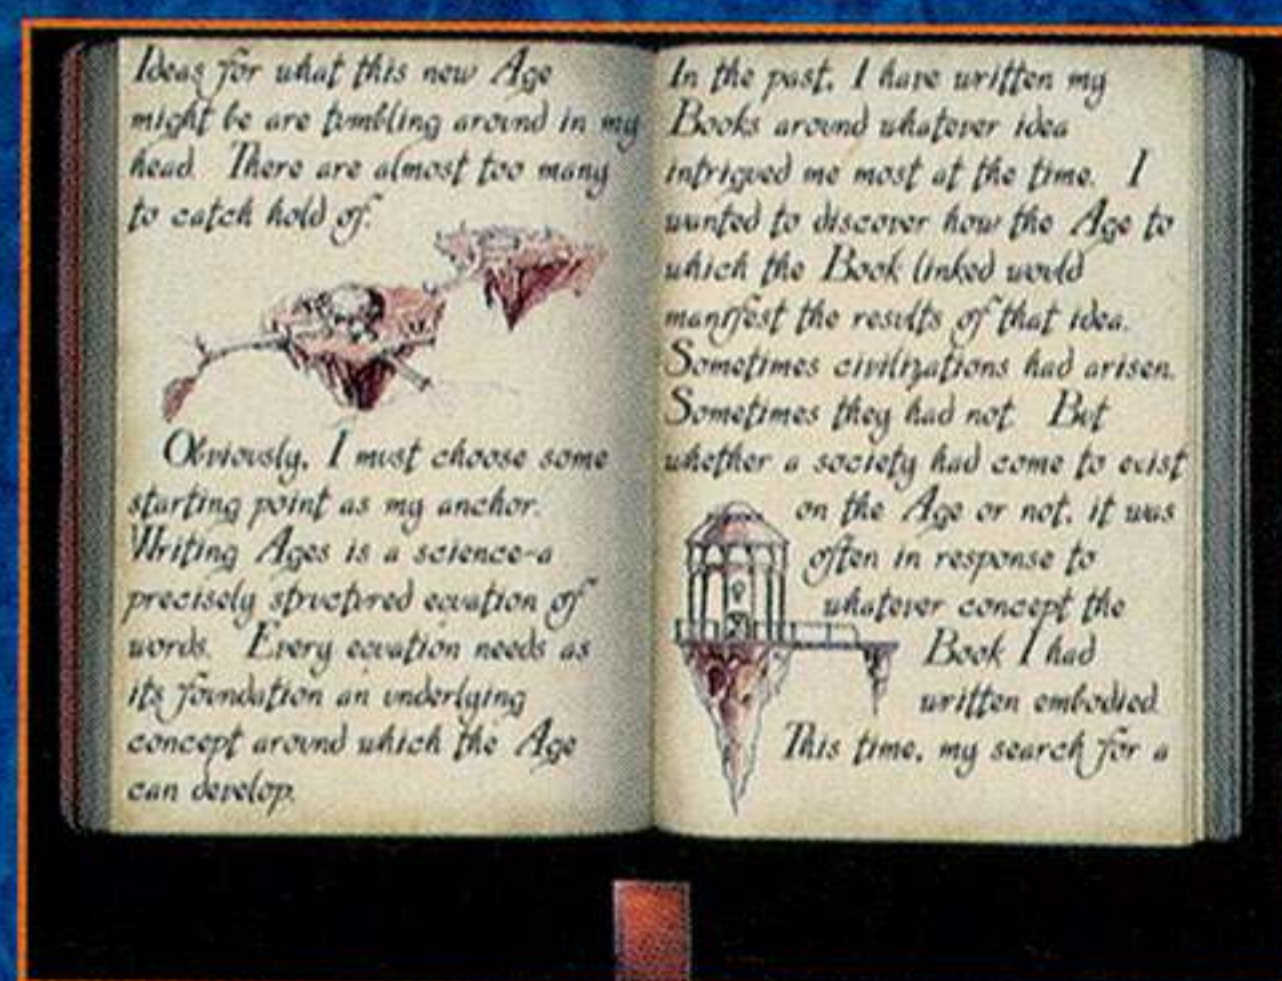 Ideas for what this new Age
might be are tumbling around in my
head. There are almost too many
to catch hold of.
Obviously, I must choose some
starting point as my anchor.
Writing Ages is a science-a
precisely structured equation of
words. Every equation needs as
its foundation an underlying
concept around which the Age
can develop.
In the past, I have written my
Books around whatever idea
intrigued me most at the time. I
wanted to discover how the Age to
which the Book linked would
manifest the results of that idea.
Sometimes civilizations had arisen.
Sometimes they had not. But
whether a society had come to exist
on the Age or not, it was
often in response to
whatever concept the
Book I had
written embodied.
This time, my search for a